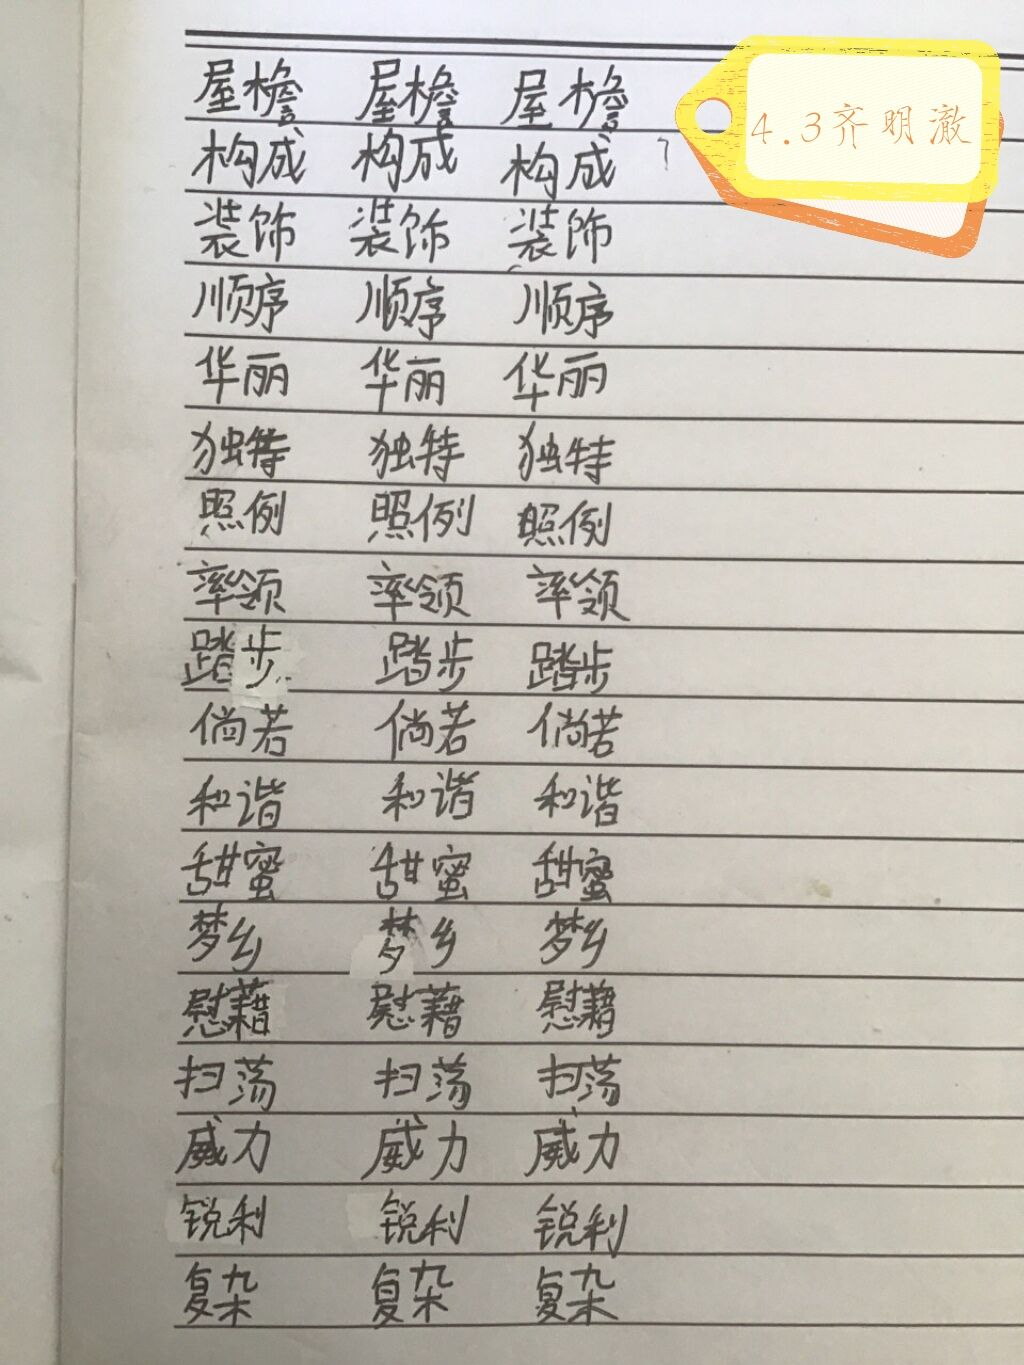 4.3齐明澈
屋檐 屋檐 屋檐
构成 构成 构成
装饰 装饰 装饰
顺序 顺序 顺序
华丽 华丽 华丽
独特 独特 独特
照例 照例 照例
率领 率领 率领
踏步 踏步 踏步
倘若 倘若 倘若
和谐 和谐 和谐
甜蜜 甜蜜 甜蜜
梦乡 梦乡 梦乡
慰藉 慰藉 慰藉
扫荡 扫荡 扫荡
威力 威力 威力
锐利 锐利 锐利
复杂 复杂 复杂